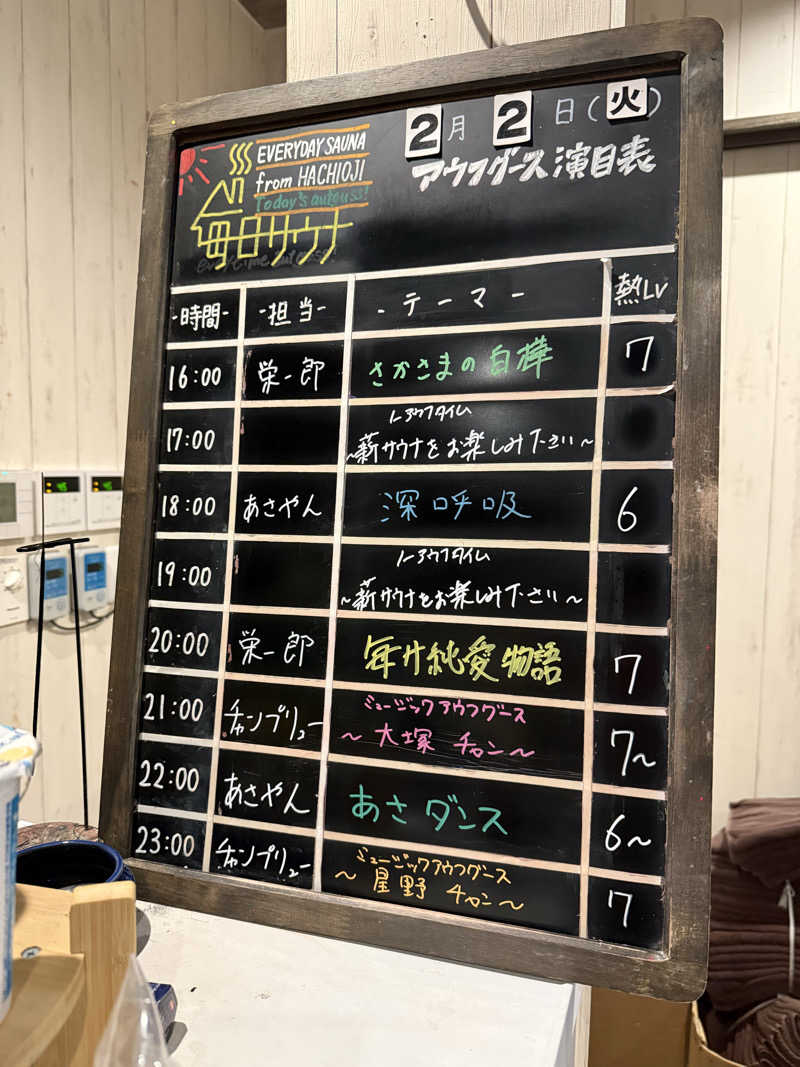 2月2日(火)
アウフグース演目表
EVERYDAY SAUNA
from HACHIOJI
Today's aufguss!
毎日サウナ
-時間- -担当- -テーマ- 熱LV
16:00 栄一郎 さかさまの白樺 7
17:00 ノーアウフタイム
~薪サウナをお楽しみ下さい~
18:00 あさやん 深呼吸 6
19:00 ノーアウフタイム
~薪サウナをお楽しみ下さい~
20:00 栄一郎 年汁純愛物語 7
21:00 チャンプリュー ミュージックアウフグース
~大塚 チャン~ 7~
22:00 あさやん あさダンス 6~
23:00 チャンプリュー ミュージックアウフグース
~星野 チャン~ 7